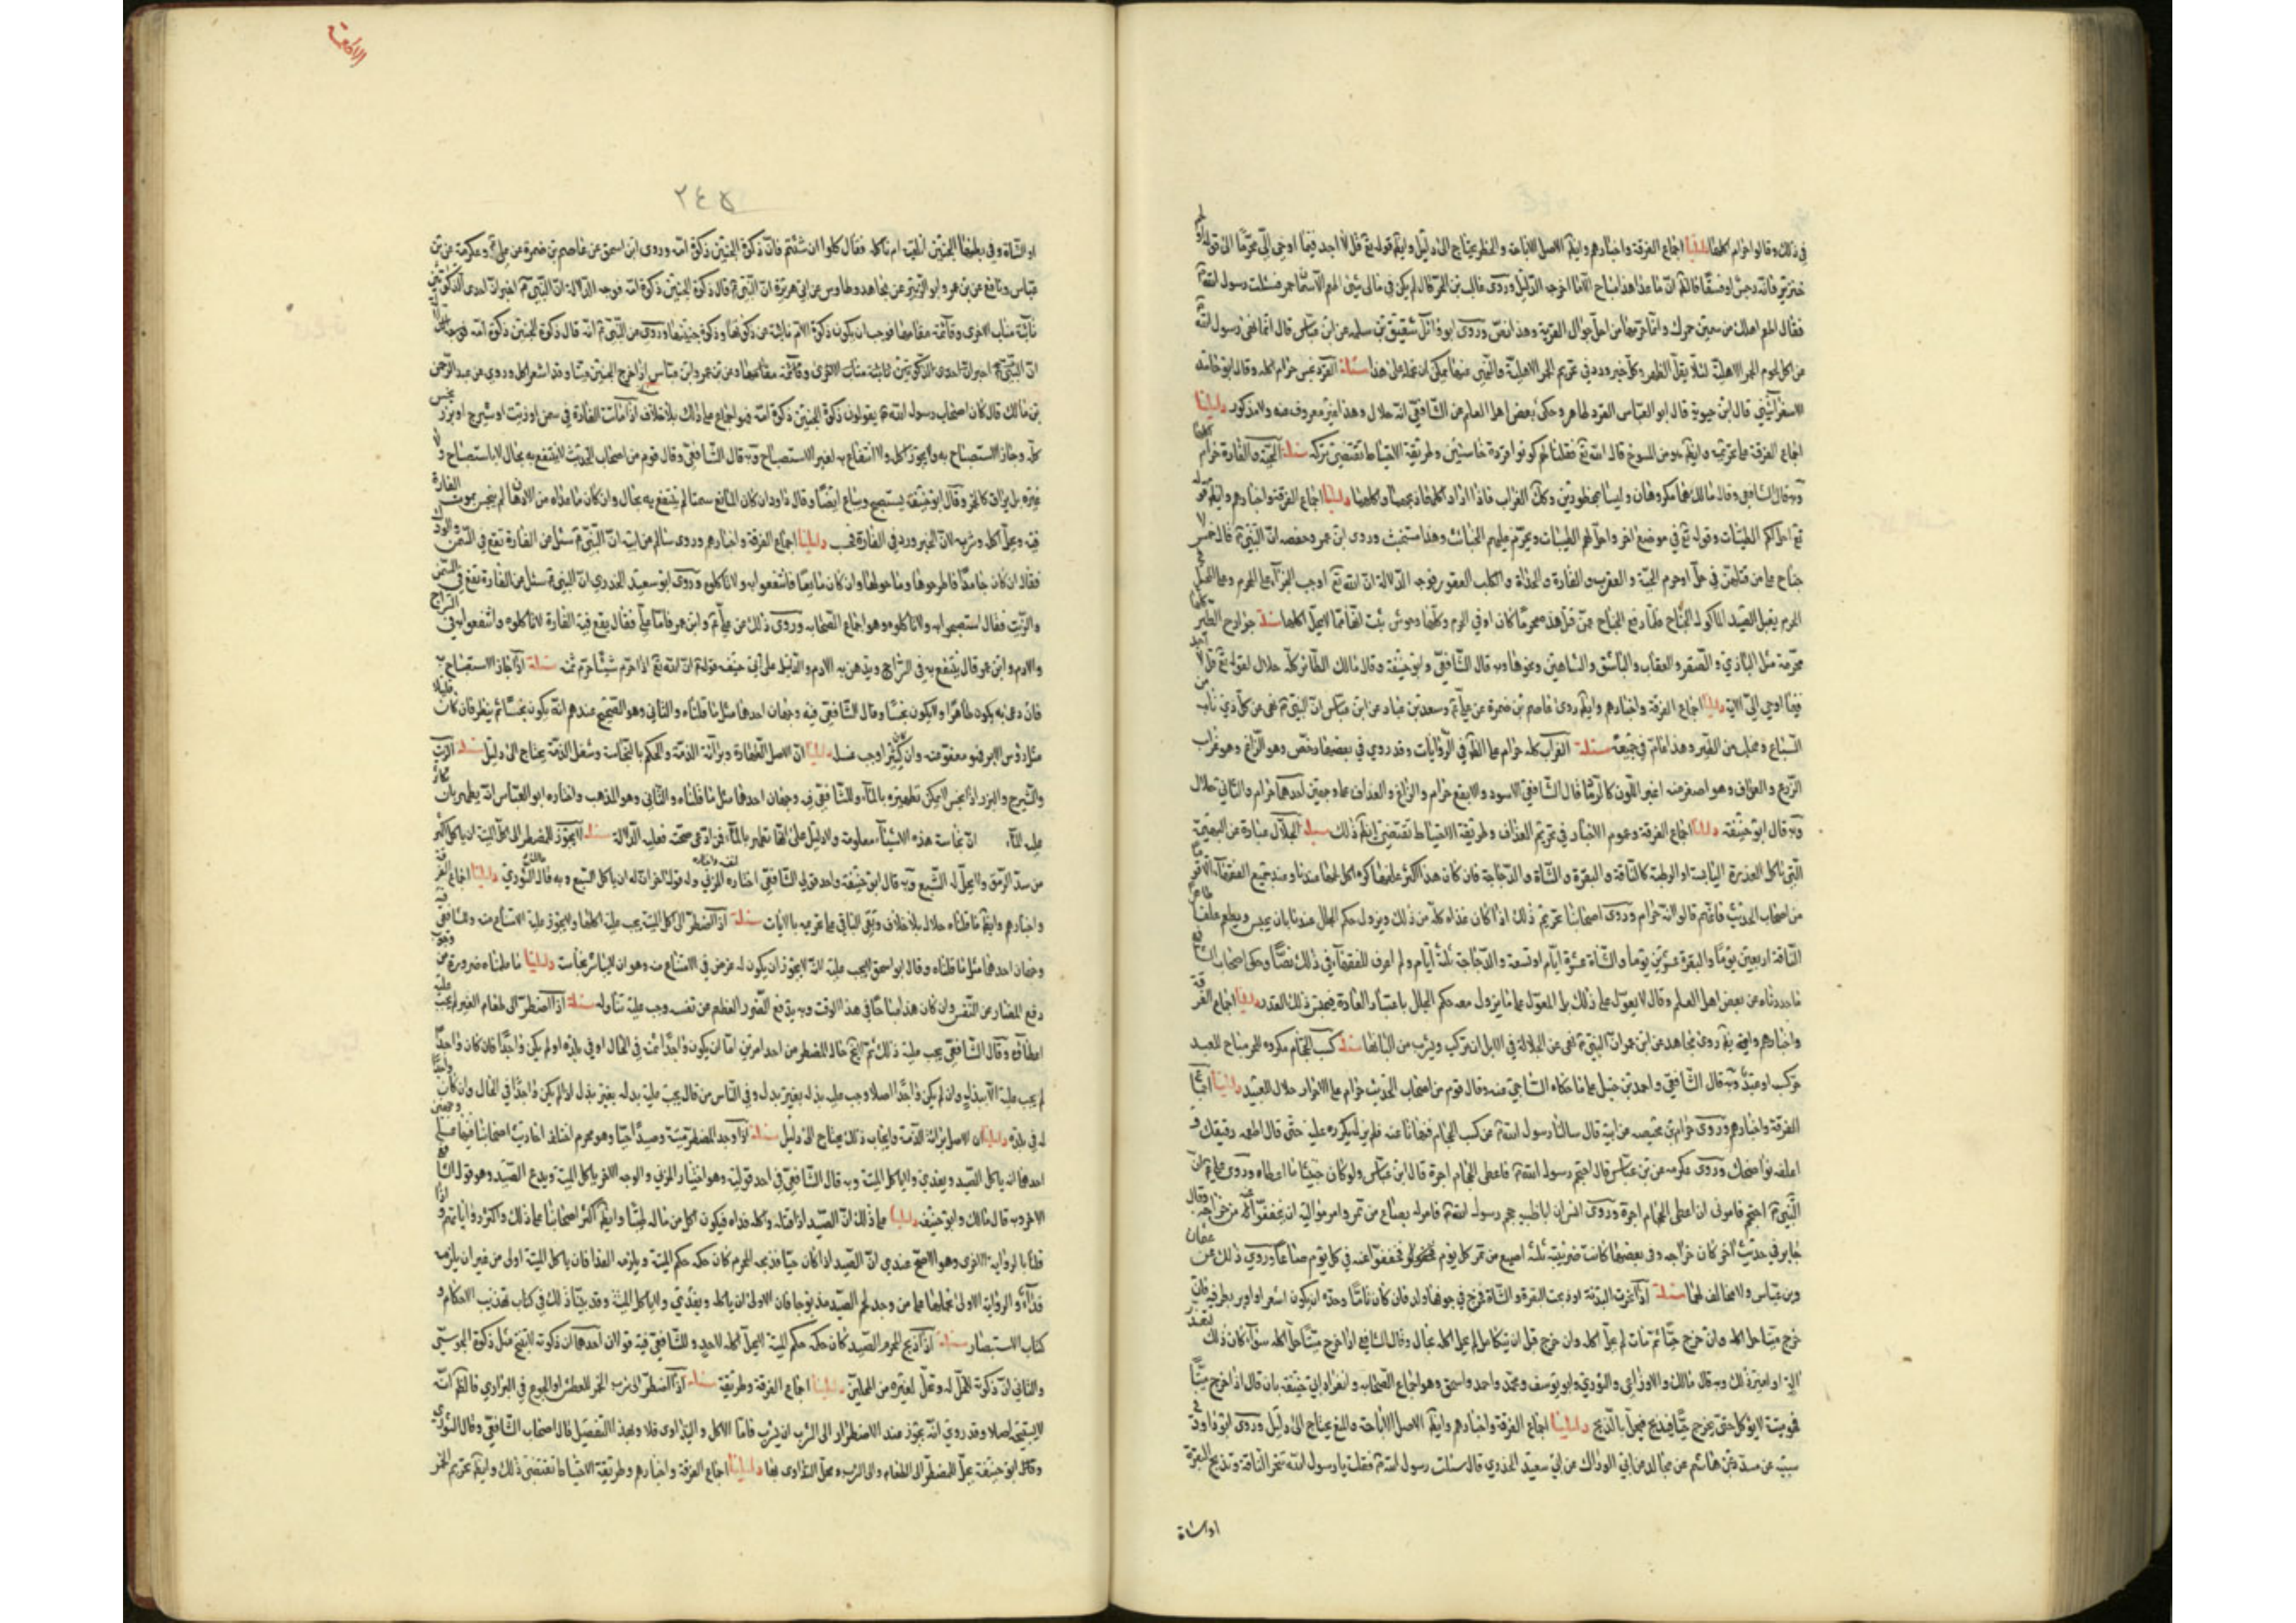 في ذلك وقالوا حرام اكلها دليلنا اجماع الفرقة واخبارهم وايضا الاصل الاباحة والحظر يحتاج الى دليل وايضا قوله تع قل لا اجد فيما اوحي الي محرما الى قوله
فقال اطعم اهلك من سمين حمرك وانما حرمتها من اجل جوال القرية وهذا نص وروى ابو وائل شقيق بن سلمه عن ابن عباس قال انما نهى رسول الله
من اكل لحوم الحمر الاهلية لئلا يقل الظهر وكل خبر ورد في تحريم الحمر الاهلية والنهي عنها يمكن ان نحمله على هذا مسئلة القرد نجس حرام اكله وقال ابو حامد
الاسفرايني قال ابن حيوية قال ابو العباس القرد طاهر وحكى بعض اهل العلم عن الشافعي انه حلال وهذا غير معروف عنه ولا مذكور دليلنا
اجماع الفرقة على تحريمه وايضا هو من المسوخ قال الله تع فقلنا لهم كونوا قردة خاسئين وطريقة الاحتياط تقتضي تركه مسئلة الحية والفارة حرام
وبه قال الشافعي وقال مالك هما مكروهان وليسا بمحظورين وكك الغراب فاذا اراد اكلها ذبحها واكلها دليلنا اجماع الفرقة واخبارهم وايضا قوله
تع احل لكم الطيبات وقوله تع في موضع اخر واحل لهم الطيبات ويحرم عليهم الخبائث وهذا مستخبث وروى ابن عمر وحفصه ان النبي قال خمس لا
جناح على من قتلهن في حل او حرم الحية والعقرب والفارة والحداة والكلب العقور فوجه الدلالة ان الله تع اوجب الجزآء على المحرم
محرمة مثل البازي والصقر والعقاب والباشق والشاهين ونحوها وبه قال الشافعي وابو حنيفة وقال مالك الطائر كله حلال لقوله تع قل لا اجد
فيما اوحي الي الاية دليلنا اجماع الفرقة واخبارهم وايضا روى عاصم بن ضمرة عن علي وسعيد بن عباد عن ابن عباس ان النبي نهى عن كل ذي ناب من
السباع ومخلب من الطير وهذا عام في جميعه مسئلة الغراب كله حرام على الظاهر في الروايات وقد روي في بعضها رخص وهو الزاغ وهو غراب
الزرع والغداف وهو اصغر منه اغبر اللون كالرماد قال الشافعي الاسود والابقع حرام والزاغ والغداف على وجهين احدهما حرام والثاني حلال
وبه قال ابو حنيفة دليلنا اجماع الفرقة وعموم الاخبار في تحريم الغداف وطريقة الاحتياط تقتضي ايضا ذلك مسئلة الجلال عبارة عن البهيمة
التي تاكل العذرة اليابسة او الرطبة كالناقة والبقرة والشاة والدجاجة فان كان هذا اكثر علفها كره اكل لحمها عندنا وعند جميع الفقهآء الا قوما
من اصحاب الحديث فانهم قالوا انه حرام وروى اصحابنا تحريم ذلك اذا كان غذاه كله من ذلك ويزول حكم الجلل عندنا بان يحبس ويطعم علفا طاهرا
الناقة اربعين يوما والبقرة عشرين يوما والشاة عشرة ايام او سبعة والدجاجة ثلثة ايام ولم اعرف للفقهآء في ذلك نصا وحكى اصحاب الشافعي
ما حددناه عن بعض اهل العلم وقال لا يعول على ذلك بل المعول على ما يزول معه حكم الجلل باعتبار العادة فيحبس ذلك القدر دليلنا اجماع الفرقة
واخبارهم وايضا روى مجاهد عن ابن عمر ان النبي نهى عن الجلالة في الابل ان يركب ويشرب من البانها مسئلة كسب الحجام مكروه للحر مباح للعبد
حر كسب او عبد وبه قال الشافعي واحمد بن حنبل على ما حكاه الساجي عنه وقال قوم من اصحاب الحديث حرام على الاحرار حلال للعبيد دليلنا اجماع
الفرقة واخبارهم وروى حرام بن محيصه عن ابيه قال سالنا رسول الله عن كسب الحجام فنهانا عنه فلم يزل يكرره عليه حتى قال اطعمه رقيقك و
اعلفه نواضحك وروى عكرمه عن بن عباس قال احتجم رسول الله فاعطى الحجام اجرة قال ابن عباس ولو كان خبيثا ما اعطاه وروى علي ان
النبي احتجم فامرني ان اعطي الحجام اجرة وروى انس ان ابا طيبه حجم رسول الله فامر له بصاع من تمر وامر مواليه ان يخففوا عنه من خراجه وقال
جابر في حديث اخر كان خراجه وفي بعضها كانت ضريبته ثلثة اصيع من تمر كل يوم فخففوا عنه في كل يوم صاعا وروي ذلك عن عثمان
وبن عباس ولا مخالف لهما مسئلة اذا نحرت البدنة او ذبحت البقرة والشاة فخرج في جوفها ولد فان كان تاما وحده ان يكون اشعر او اوبر نظر فيه فان
خرج ميتا حل اكله وان خرج حيا ثم مات لم يحل اكله وان خرج قبل ان يتكامل لم يحل اكله بحال وقال الشافعي اذا خرج ميتا حل اكله سوآء كان ذلك
وبه قال مالك والاوزاعي والثوري وابو يوسف ومحمد واحمد واسحق وهو اجماع الصحابه وانفرد ابي حنيفة بان قال اذا خرج ميتا
فهو ميتة لا يؤكل حتى يخرج حيا فيذبح فيحل بالذبح دليلنا اجماع الفرقة واخبارهم وايضا الاصل الاباحة والمنع يحتاج الى دليل وروى ابو داود
عن مسدد عن هاشم عن مجالد عن ابي الوداك عن ابي سعيد الخدري قال سئلت رسول الله فقلت يا رسول الله ننحر الناقة ونذبح البقرة
او الشاة
الاطعمة
٢٤٥
او الشاة وفي بطنها الجنين انلقيه ام ناكله فقال كلوا ان شئتم فان ذكوة الجنين ذكوة امه وروى ابن اسحق عن عاصم بن ضمرة عن علي وعكرمة عن بن
عباس ونافع عن بن عمر وابو الزبير عن مجاهد وطاوس عن ابي هريرة ان النبي قال ذكوة الجنين ذكوة امه فوجه الدلالة ان النبي اخبر ان احدى الذكوتين
نائبة مناب الاخرى وقائمة مقامها فوجب ان يكون ذكوة الام نائبة عن ذكوتها وذكوة جنينها وروى عن النبي انه قال ذكوة الجنين ذكوة امه
ان النبي اخبر ان احدى الذكوتين نائبة مناب الاخرى وقائمة مقامها وعن بن عمر وابن عباس اذا خرج الجنين ميتا وقد اشعر اكل وروي عن عبد الرحمن
بن مالك قال كان اصحاب رسول الله يقولون ذكوة الجنين ذكوة امه فهو اجماع على ذلك بلا خلاف اذا ماتت الفارة في سمن او زيت او شيرج او بزر نجس
كله وجاز الاستصباح به ولا يجوز اكله ولا الانتفاع به لغير الاستصباح وبه قال الشافعي وقال قوم من اصحاب الحديث لا ينتفع به بحال لا باستصباح ولا
غيره بل يراق كالخمر وقال ابو حنيفة يستصبح به ويباع ايضا وقال داود ان كان المايع سمنا لم ينتفع به بحال وان كان ما عداه من الادهان لم ينجس بموت الفارة
فيه ويحل اكله وشربه لان الخبر ورد في الفارة فحسب دليلنا اجماع الفرقة واخبارهم وروى سالم عن ابيه ان النبي سئل عن الفارة تقع في السمن
فقال ان كان جامدا فاطرحوها وما حولها وان كان مايعا فانتفعوا به ولا تاكلوه وروى ابو سعيد الخدري ان النبي سئل عن الفارة تقع في السمن
والزيت فقال استصبحوا به ولا تاكلوه وهو اجماع الصحابه وروى ذلك عن علي وابن عمر فاما علي فقال يقع فيه الفارة لا تاكلوه وانتفعوا به في السراج
والادم وابن عمر قال ينتفع به في السراج ويدهن به الادم والدليل على ابي حنيفه قوله ان الله تع اذا حرم شيئا حرم ثمنه مسئلة اذا جاز الاستصباح به
فان دخانه يكون طاهرا ولا يكون نجسا وقال الشافعي فيه وجهان احدهما مثل ما قلناه والثاني وهو الصحيح عندهم انه يكون نجسا ثم ينظر فان كان قليلا
مثل رؤس الابر فهو معفو عنه وان كان كثيرا وجب غسله دليلنا ان الاصل الطهارة وبرائة الذمة والحكم بالنجاسة وشغل الذمة يحتاج الى دليل مسئلة الزيت
والشيرج والبزر اذا نجس لا يمكن تطهيره بالمآء وللشافعي فيه وجهان احدهما مثل ما قلناه والثاني وهو المذهب واختاره ابو العباس انه يطهر بان
عليه المآء ان نجاسة هذه الاشيآء معلومة ولا دليل على انها تطهر بالمآء فمن ادعى صحته فعليه الدلالة مسئلة لا يجوز للمضطر الى اكل الميتة ان ياكل اكثر
من سد الرمق ولا يحل له الشبع وبه قال ابو حنيفة واحد قولي الشافعي اختاره المزني وله قول اخر ان له ان ياكل الشبع وبه قال الثوري دليلنا اجماع الفرقة
واخبارهم وايضا ما قلناه حلال بلا خلاف وبقي الباقي على تحريمه بالايات مسئلة اذا اضطر الى اكل الميتة يجب عليه اكلها ولا يجوز عليه الامتناع منه وللشافعي فيه
وجهان احدهما مثل ما قلناه وقال ابو اسحق لا يجب عليه لانه يجوز ان يكون له غرض في الامتناع منه وهو ان لا يباشر نجاسة دليلنا ما علمناه ضرورة من وجوب
دفع المضار عن النفس وان كان هذا مباحا في هذا الوقت وبه يدفع الضرر العظيم عن نفسه وجب عليه تناوله مسئلة اذا اضطر الى طعام الغير لم يجب عليه
اعطاؤه وقال الشافعي يجب عليه ذلك ثم لا يخ حال المضطر من احد امرين اما ان يكون واجدا ثمنه في الحال او في بلده او لم يكن واجدا فان كان واجدا
لم يجب عليه الا ببدله وان لم يكن واجدا اصلا وجب عليه بذله بغير بدل وفي الناس من قال يجب عليه بدله بغير بدل اذا لم يكن واجدا في الحال وان كان واجدا
له في بلده دليلنا ان الاصل برائة الذمة وايجاب ذلك يحتاج الى دليل مسئلة اذا وجد المضطر ميتة وصيدا حيا وهو محرم اختلف احاديث اصحابنا فيها على وجهين
احدهما انه ياكل الصيد ويفدي ولا ياكل الميتة وبه قال الشافعي في احد قوليه وهو اختيار المزني والوجه الاخر ياكل الميتة ويدع الصيد وهو قول الشافعي
الاخر وبه قال مالك وابو حنيفه دليلنا على ذلك ان الصيد اذا قتله واكله فداه فيكون اكل من ماله طيبا وايضا اكثر اصحابنا على ذلك واكثر رواياتهم و
قلنا بالرواية الاخرى وهو الاصح عندي ان الصيد اذا كان حيا فذبحه المحرم كان حكمه حكم الميتة ويلزمه الفدا فان ياكل الميتة اولى من غير ان يلزمه
فدآء والرواية الاولى نحملها على من وجد لحم الصيد مذبوحا فان الاولى ان ياكله ويفدي ولا ياكل الميتة وقد بينا ذلك في كتاب تهذيب الاحكام و
كتاب الاستبصار مسئلة اذا ذبح المحرم الصيد كان حكمه حكم الميتة لا يحل اكله لاحد وللشافعي فيه قولان احدهما ان ذكوته لا تبيح مثل ذكوة المجوسي
والثاني ان ذكوته لا تحل له وتحل لغيره من المحلين دليلنا اجماع الفرقة وطريقة مسئلة اذا اضطر الى شرب الخمر للعطش او الجوع او التداوي فالظاهر انه
لا يستبيحها اصلا وقد روي انه يجوز عند الاضطرار الى الشرب ان يشرب فاما الاكل والتداوي فلا وبهذا التفصيل قال اصحاب الشافعي وقال الثوري
وقال ابو حنيفة يحل للمضطر الى الطعام والى الشرب ويحل التداوي بها دليلنا اجماع الفرقة واخبارهم وطريقة الاحتياط تقتضي ذلك وايضا تحريم الخمر